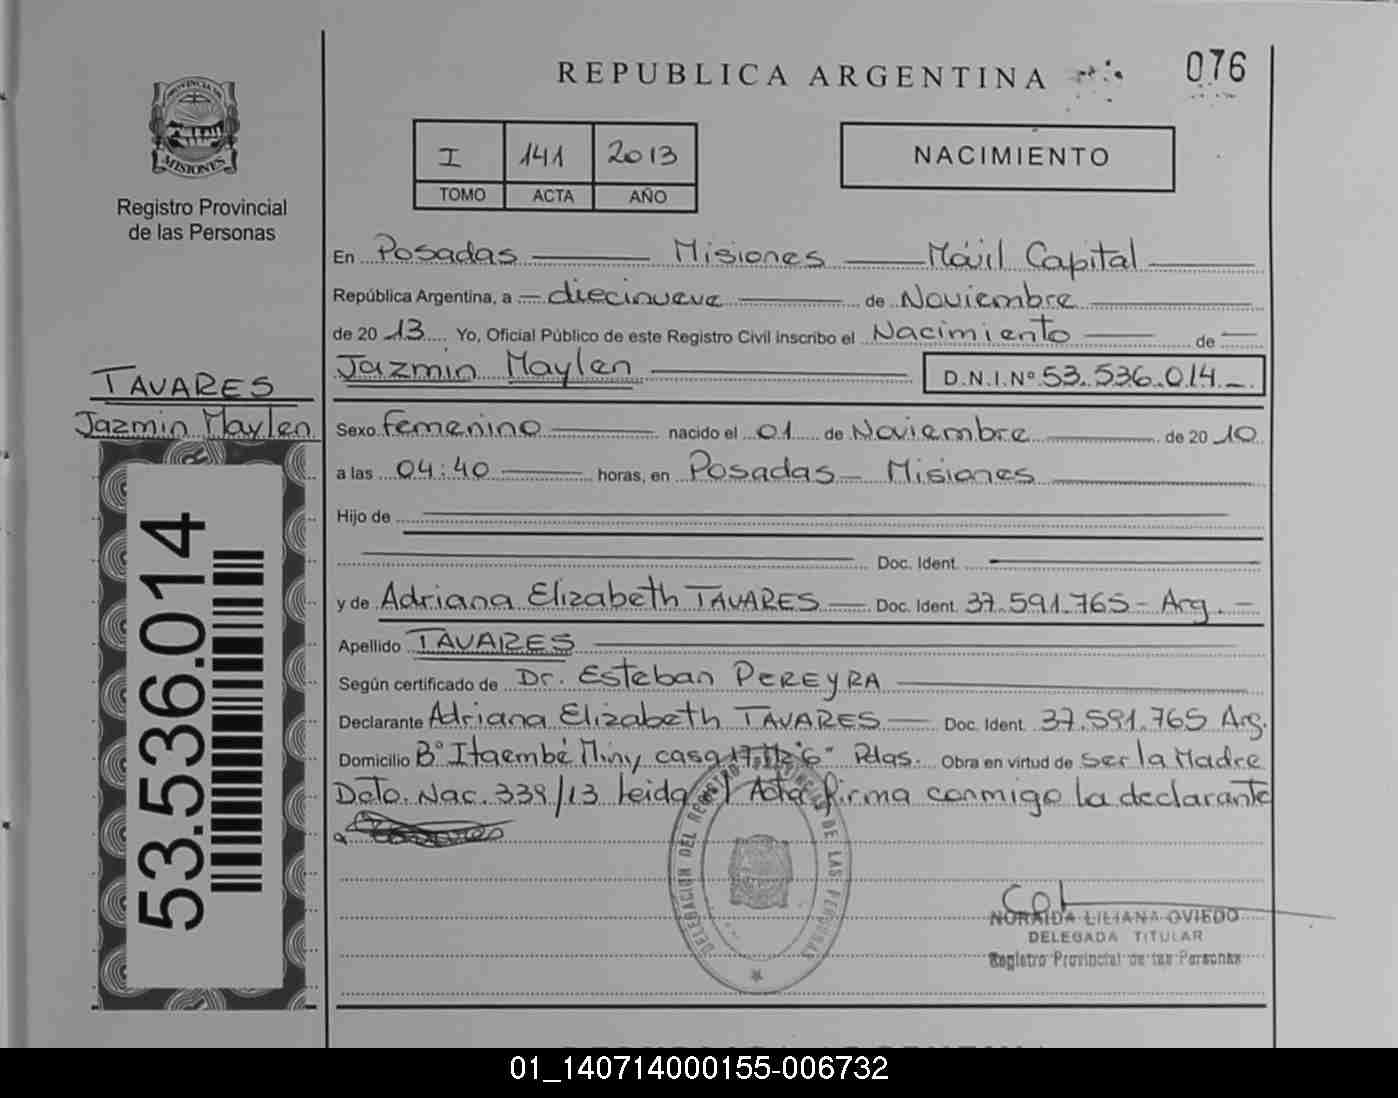 REPUBLICA ARGENTINA
076
PROVINCIA DE
MISIONES
Registro Provincial
de las Personas
I 141 2013
TOMO ACTA AÑO
NACIMIENTO
En Posadas Misiones Móvil Capital
República Argentina, a diecinueve de Noviembre
de 2013 Yo, Oficial Público de este Registro Civil inscribo el Nacimiento de
Jazmin Maylen D.N.I.Nº 53.536.014
TAVARES
Jazmin Maylen
Sexo Femenino nacido el 01 de Noviembre de 2010
a las 04:40 horas, en Posadas - Misiones
Hijo de
Doc. Ident.
y de Adriana Elizabeth TAVARES Doc. Ident. 37.591.765 - Arg. -
Apellido TAVARES
Según certificado de Dr. Esteban PEREYRA
Declarante Adriana Elizabeth TAVARES Doc. Ident. 37.591.765 Arg.
Domicilio Bº Itaembé Miny casa 17 Mz "6" Pdas. Obra en virtud de ser la Madre
Dcto. Nac. 339/13 Leida el Acta firma conmigo la declarante
53.536.014
DELEGACION DEL REGISTRO PROVINCIAL DE LAS PERSONAS
NORAIDA LILIANA OVIEDO
DELEGADA TITULAR
Registro Provincial de las Personas
01_140714000155-006732